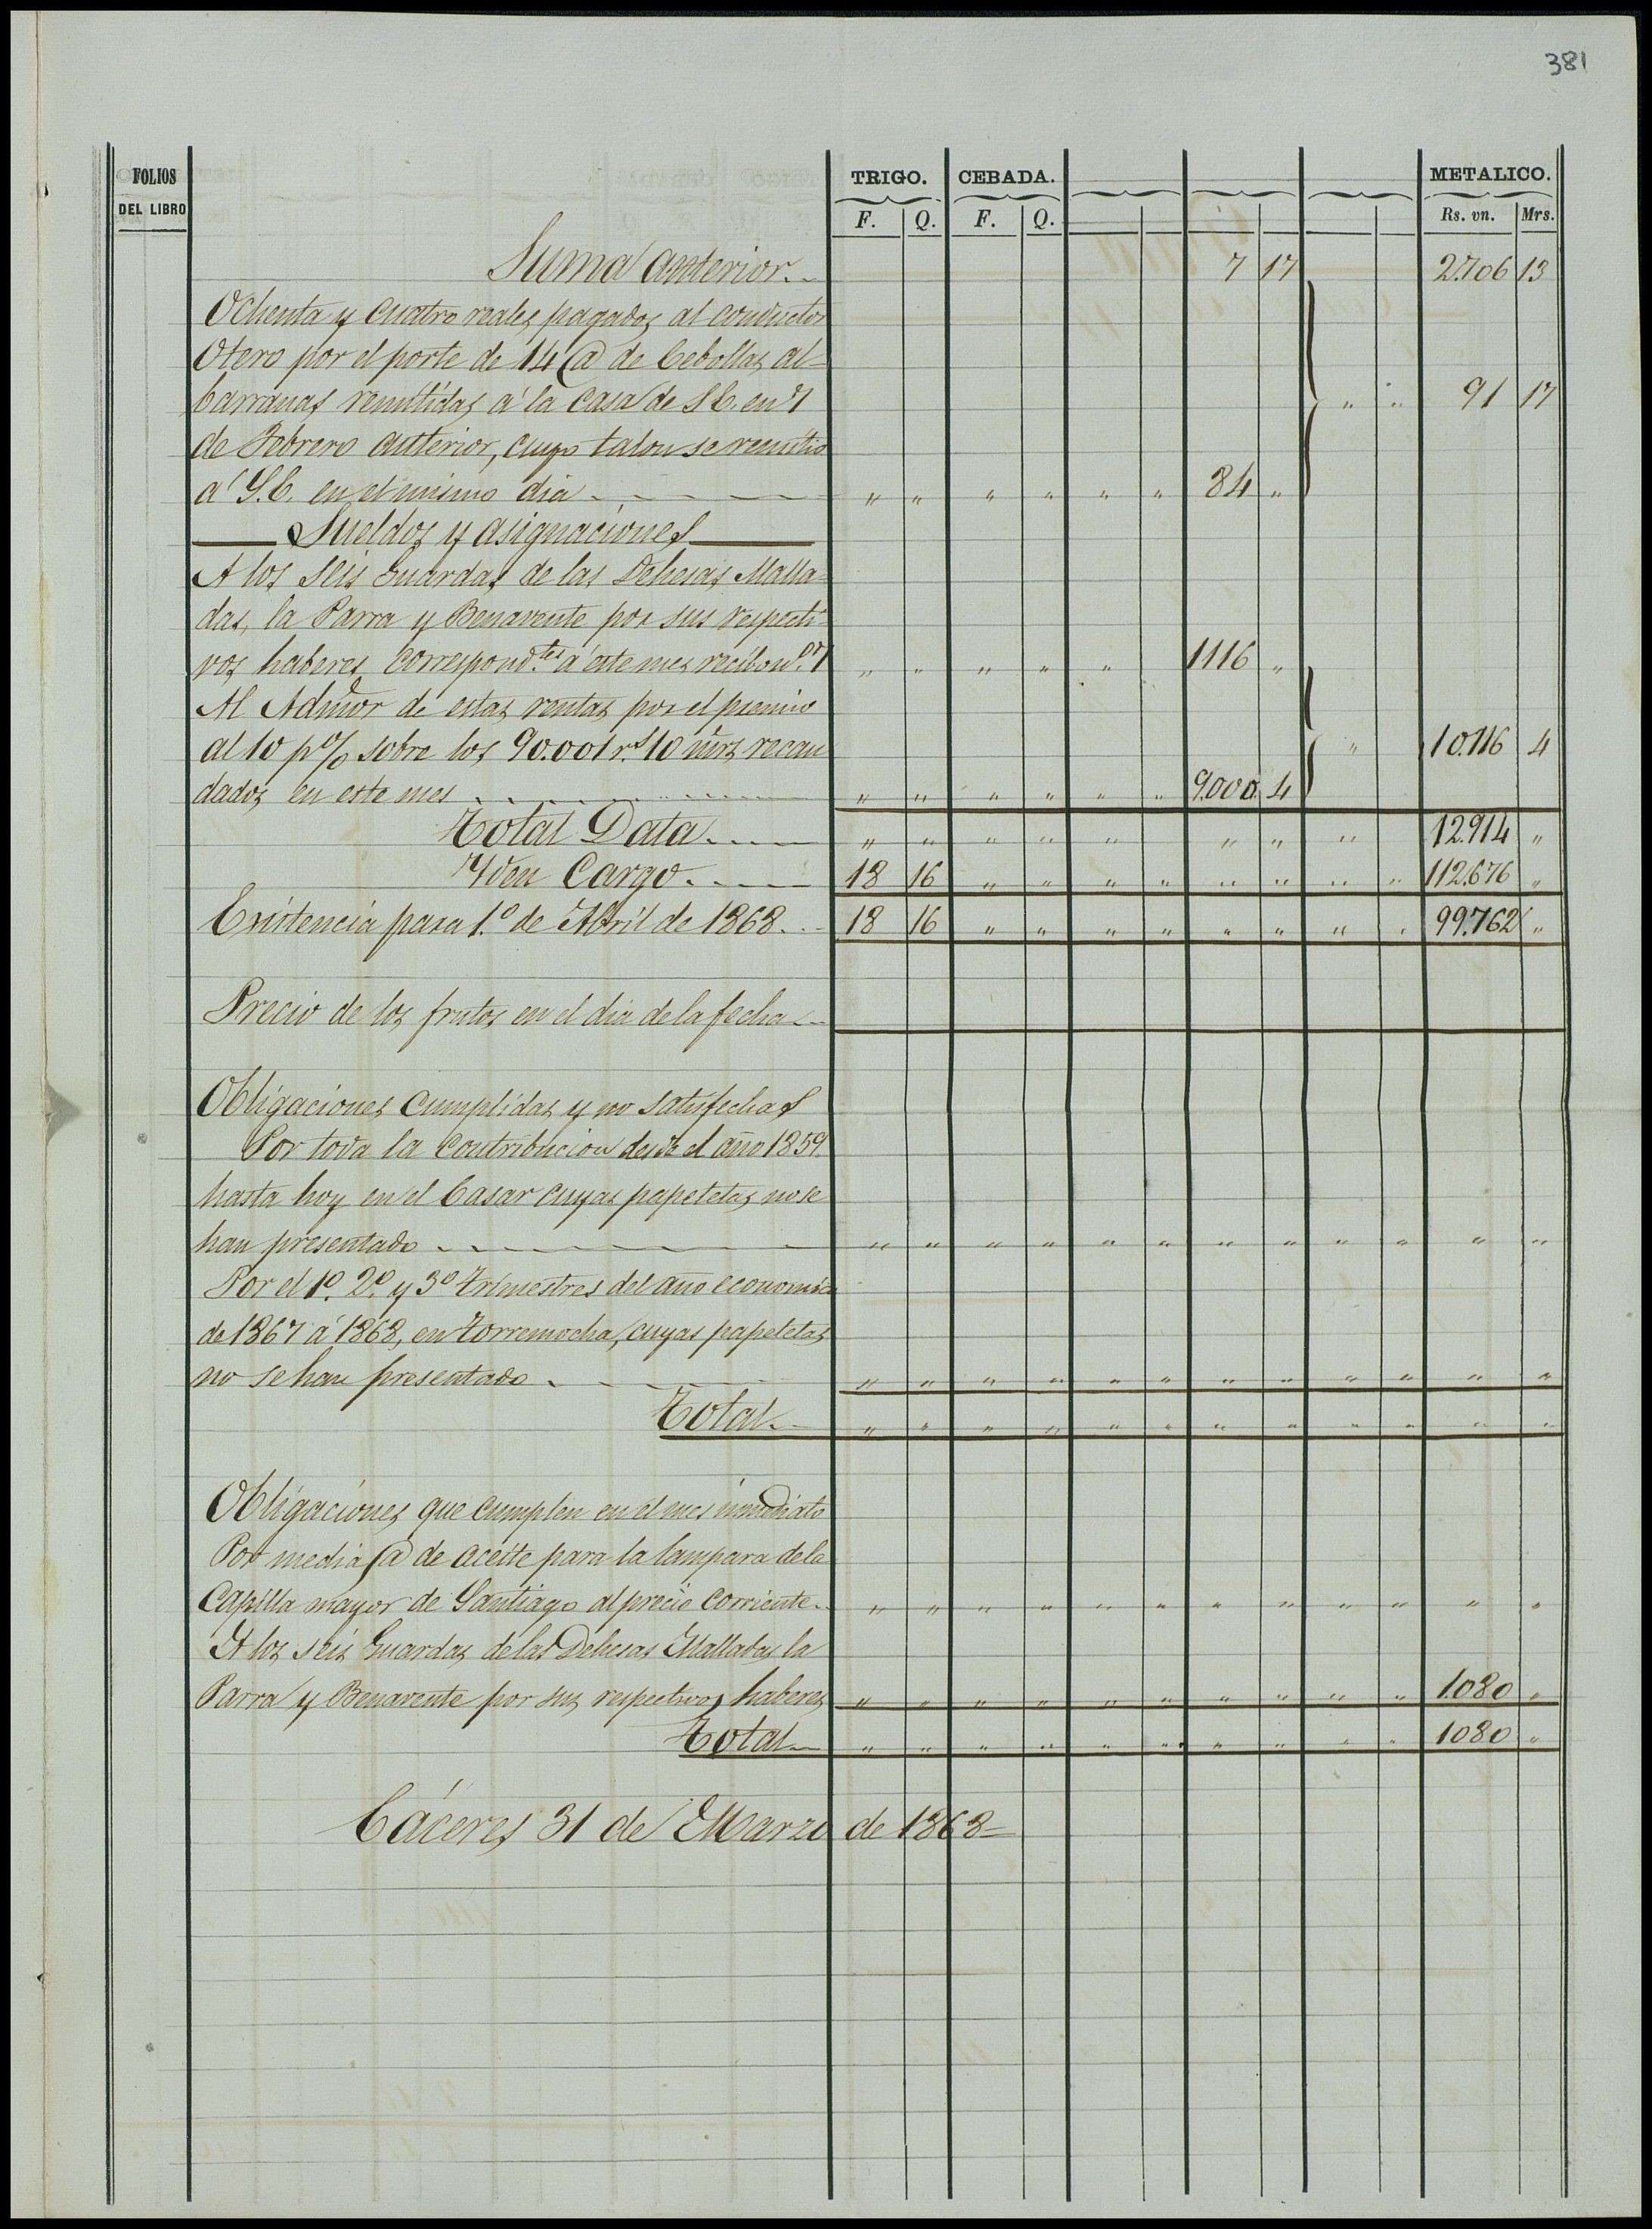 381
FOLIOS DEL LIBRO TRIGO. CEBADA. METALICO.
F. Q. F. Q. Rs. vn. Mrs.
Suma anterior.. 7 17 2.706 13
Ochenta y cuatro reales pagados al conductor
Otero por el porte de 14 @ de Cebollas al-
barranas remitidas á la Casa de S.E. en 7 " " 91 17
de Febrero anterior, cuyo talon se remitio
á S.E. en el mismo dia " " " " " " 84 "
Sueldos y asignaciones
A los seis Guardas de las Dehesas Malla=
das, la Parra y Benavente por sus respecti-
vos haberes correspond.tes á este mes recibo n.º 7 " " " " " 1116 "
Al Admor de estas rentas por el premio
al 10 p% sobre los 90.001 r.s 10 mrs recau " 10.116 4
dados en este mes " " " " " " 9.000 4
Total Data " " " " " " " " 12.914 "
Yden Cargo 18 16 " " " " " " " " 112.676 "
Existencia para 1.º de Abril de 1868 18 16 " " " " " " " " 99.762 "
Precio de los frutos en el dia de la fecha
Obligaciones cumplidas y no satisfechas
Por toda la contribucion desde el año 1859.
hasta hoy en el Casar cuyas papeletas no se
han presentado " " " " " " " " " " " "
Por el 1º. 2º. y 3º trimestres del año economico
de 1867 á 1868, en Torremocha, cuyas papeletas
no se han presentado " " " " " " " " " " " "
Total " " " " " " " " " " " "
Obligaciones que cumplen en el mes inmediato
Por media @ de aceite para la lampara de la
Capilla mayor de Santiago al precio corriente. " " " " " " " " " " " "
A los seis Guardas de las Dehesas Malladas la
Parra y Benavente por sus respectivos haberes " " " " " " " " " " 1.080 "
Total " " " " " " " " " " 1080 "
Cáceres 31 de Marzo de 1868=